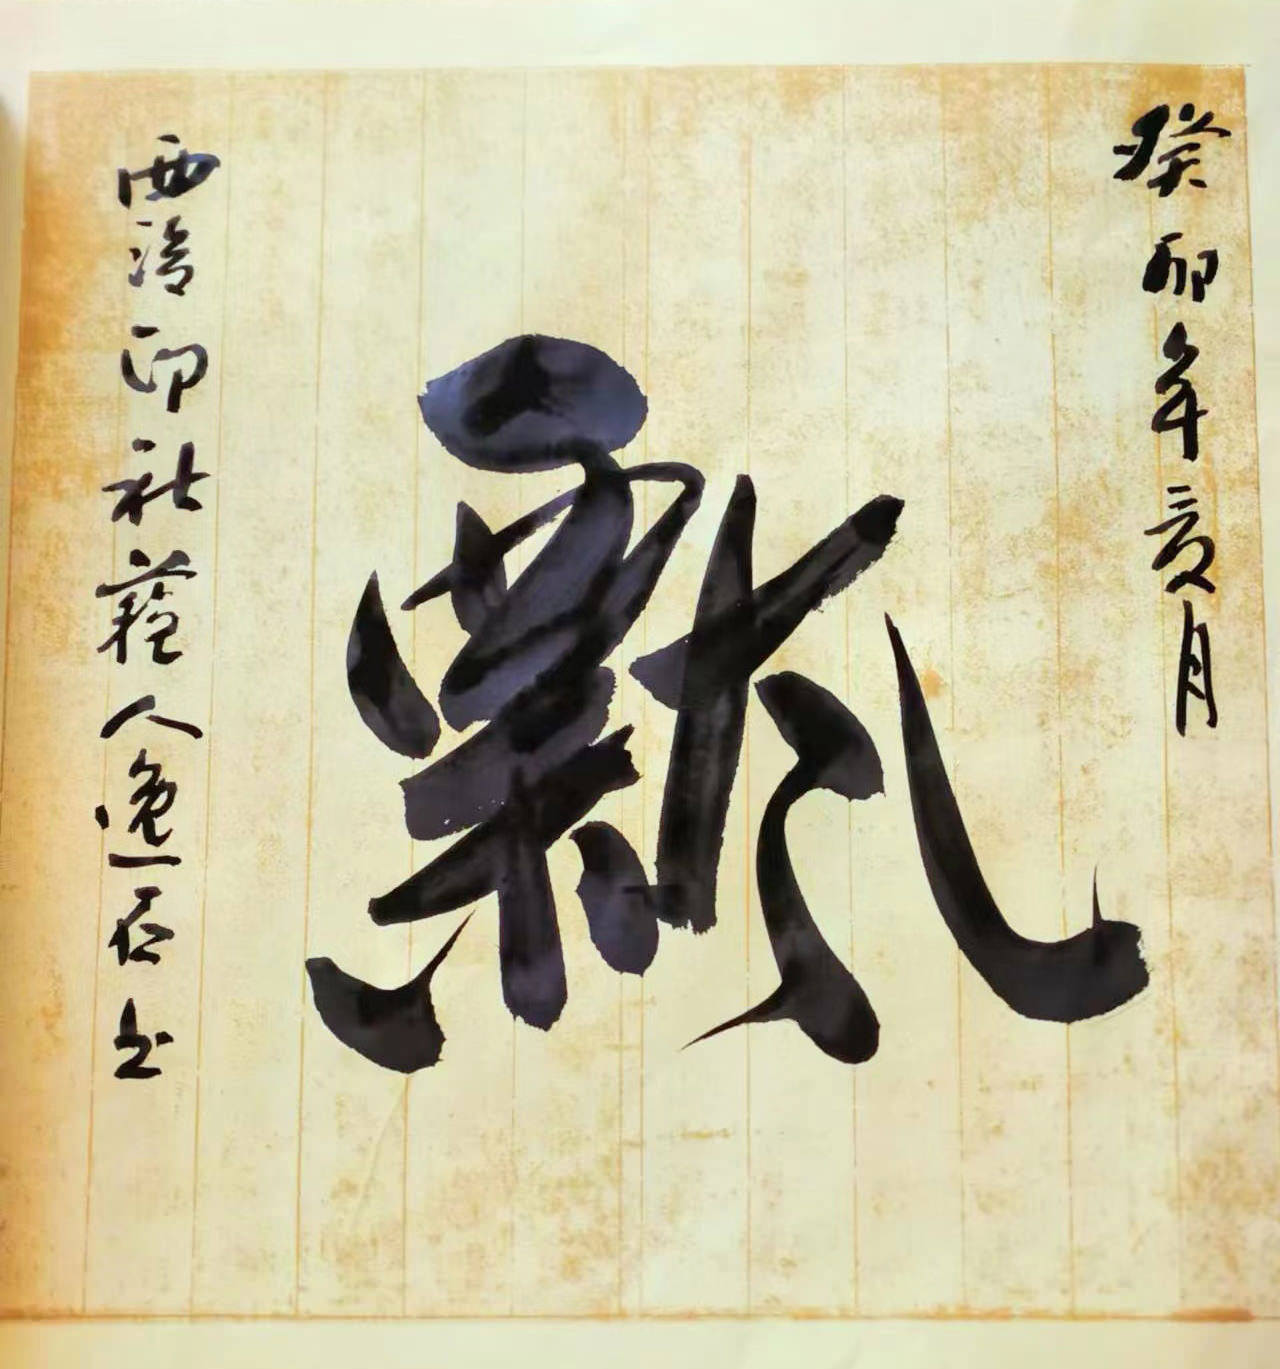 癸卯年亥月
西泠印社人逸石书